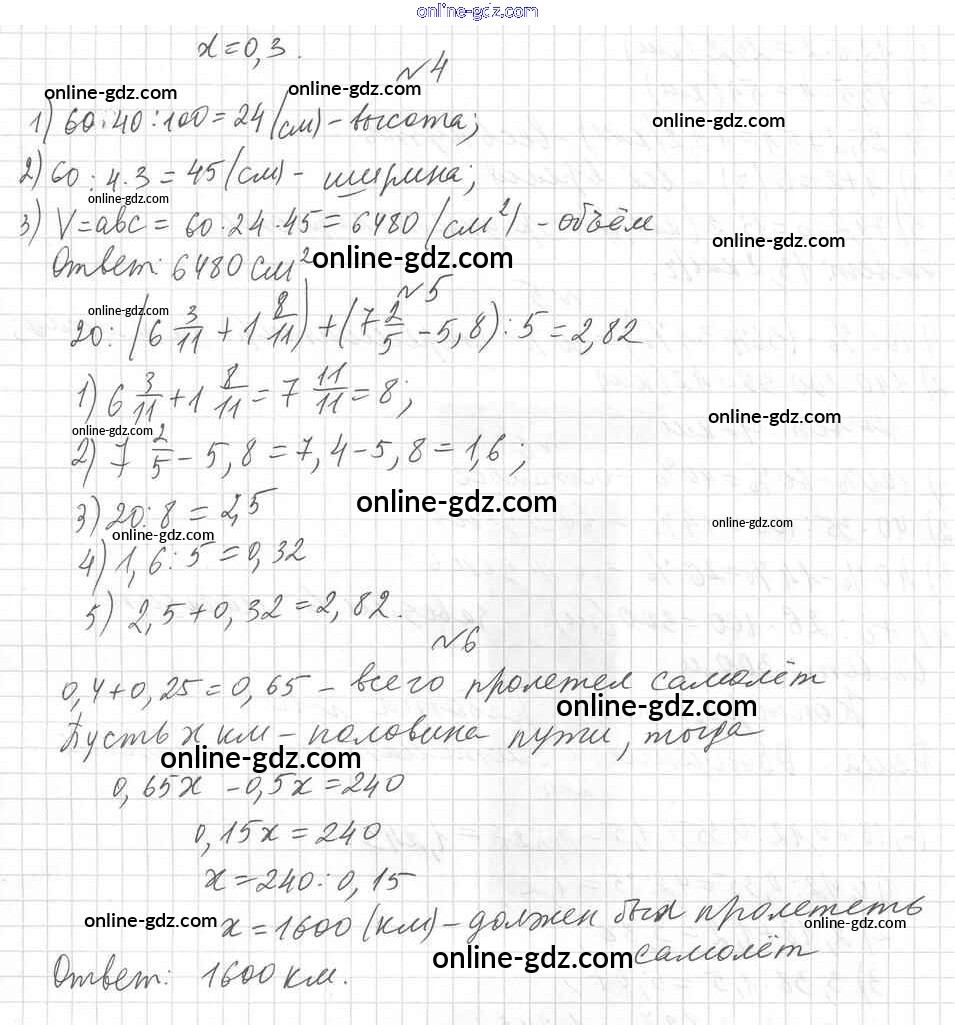 online-gdz.com
x = 0,3.
№4
online-gdz.com online-gdz.com
1) 60·40:100 = 24 (см) - высота;
online-gdz.com
2) 60:4·3 = 45 (см) - ширина;
online-gdz.com
3) V = abc = 60·24·45 = 6480 (см²) - объём
online-gdz.com
Ответ: 6480 см²
online-gdz.com
№5
online-gdz.com
20:(6 3/11 + 1 8/11) + (7 2/5 - 5,8):5 = 2,82
1) 6 3/11 + 1 8/11 = 7 11/11 = 8;
online-gdz.com
online-gdz.com
2) 7 2/5 - 5,8 = 7,4 - 5,8 = 1,6;
online-gdz.com
3) 20:8 = 2,5
online-gdz.com
online-gdz.com
4) 1,6:5 = 0,32
5) 2,5 + 0,32 = 2,82.
№6
0,4 + 0,25 = 0,65 - всего пролетел самолёт
online-gdz.com
Пусть x км - половина пути, тогда
online-gdz.com
0,65x - 0,5x = 240
0,15x = 240
x = 240:0,15
online-gdz.com
x = 1600 (км) - должен был пролететь
online-gdz.com
самолёт
online-gdz.com
Ответ: 1600 км.